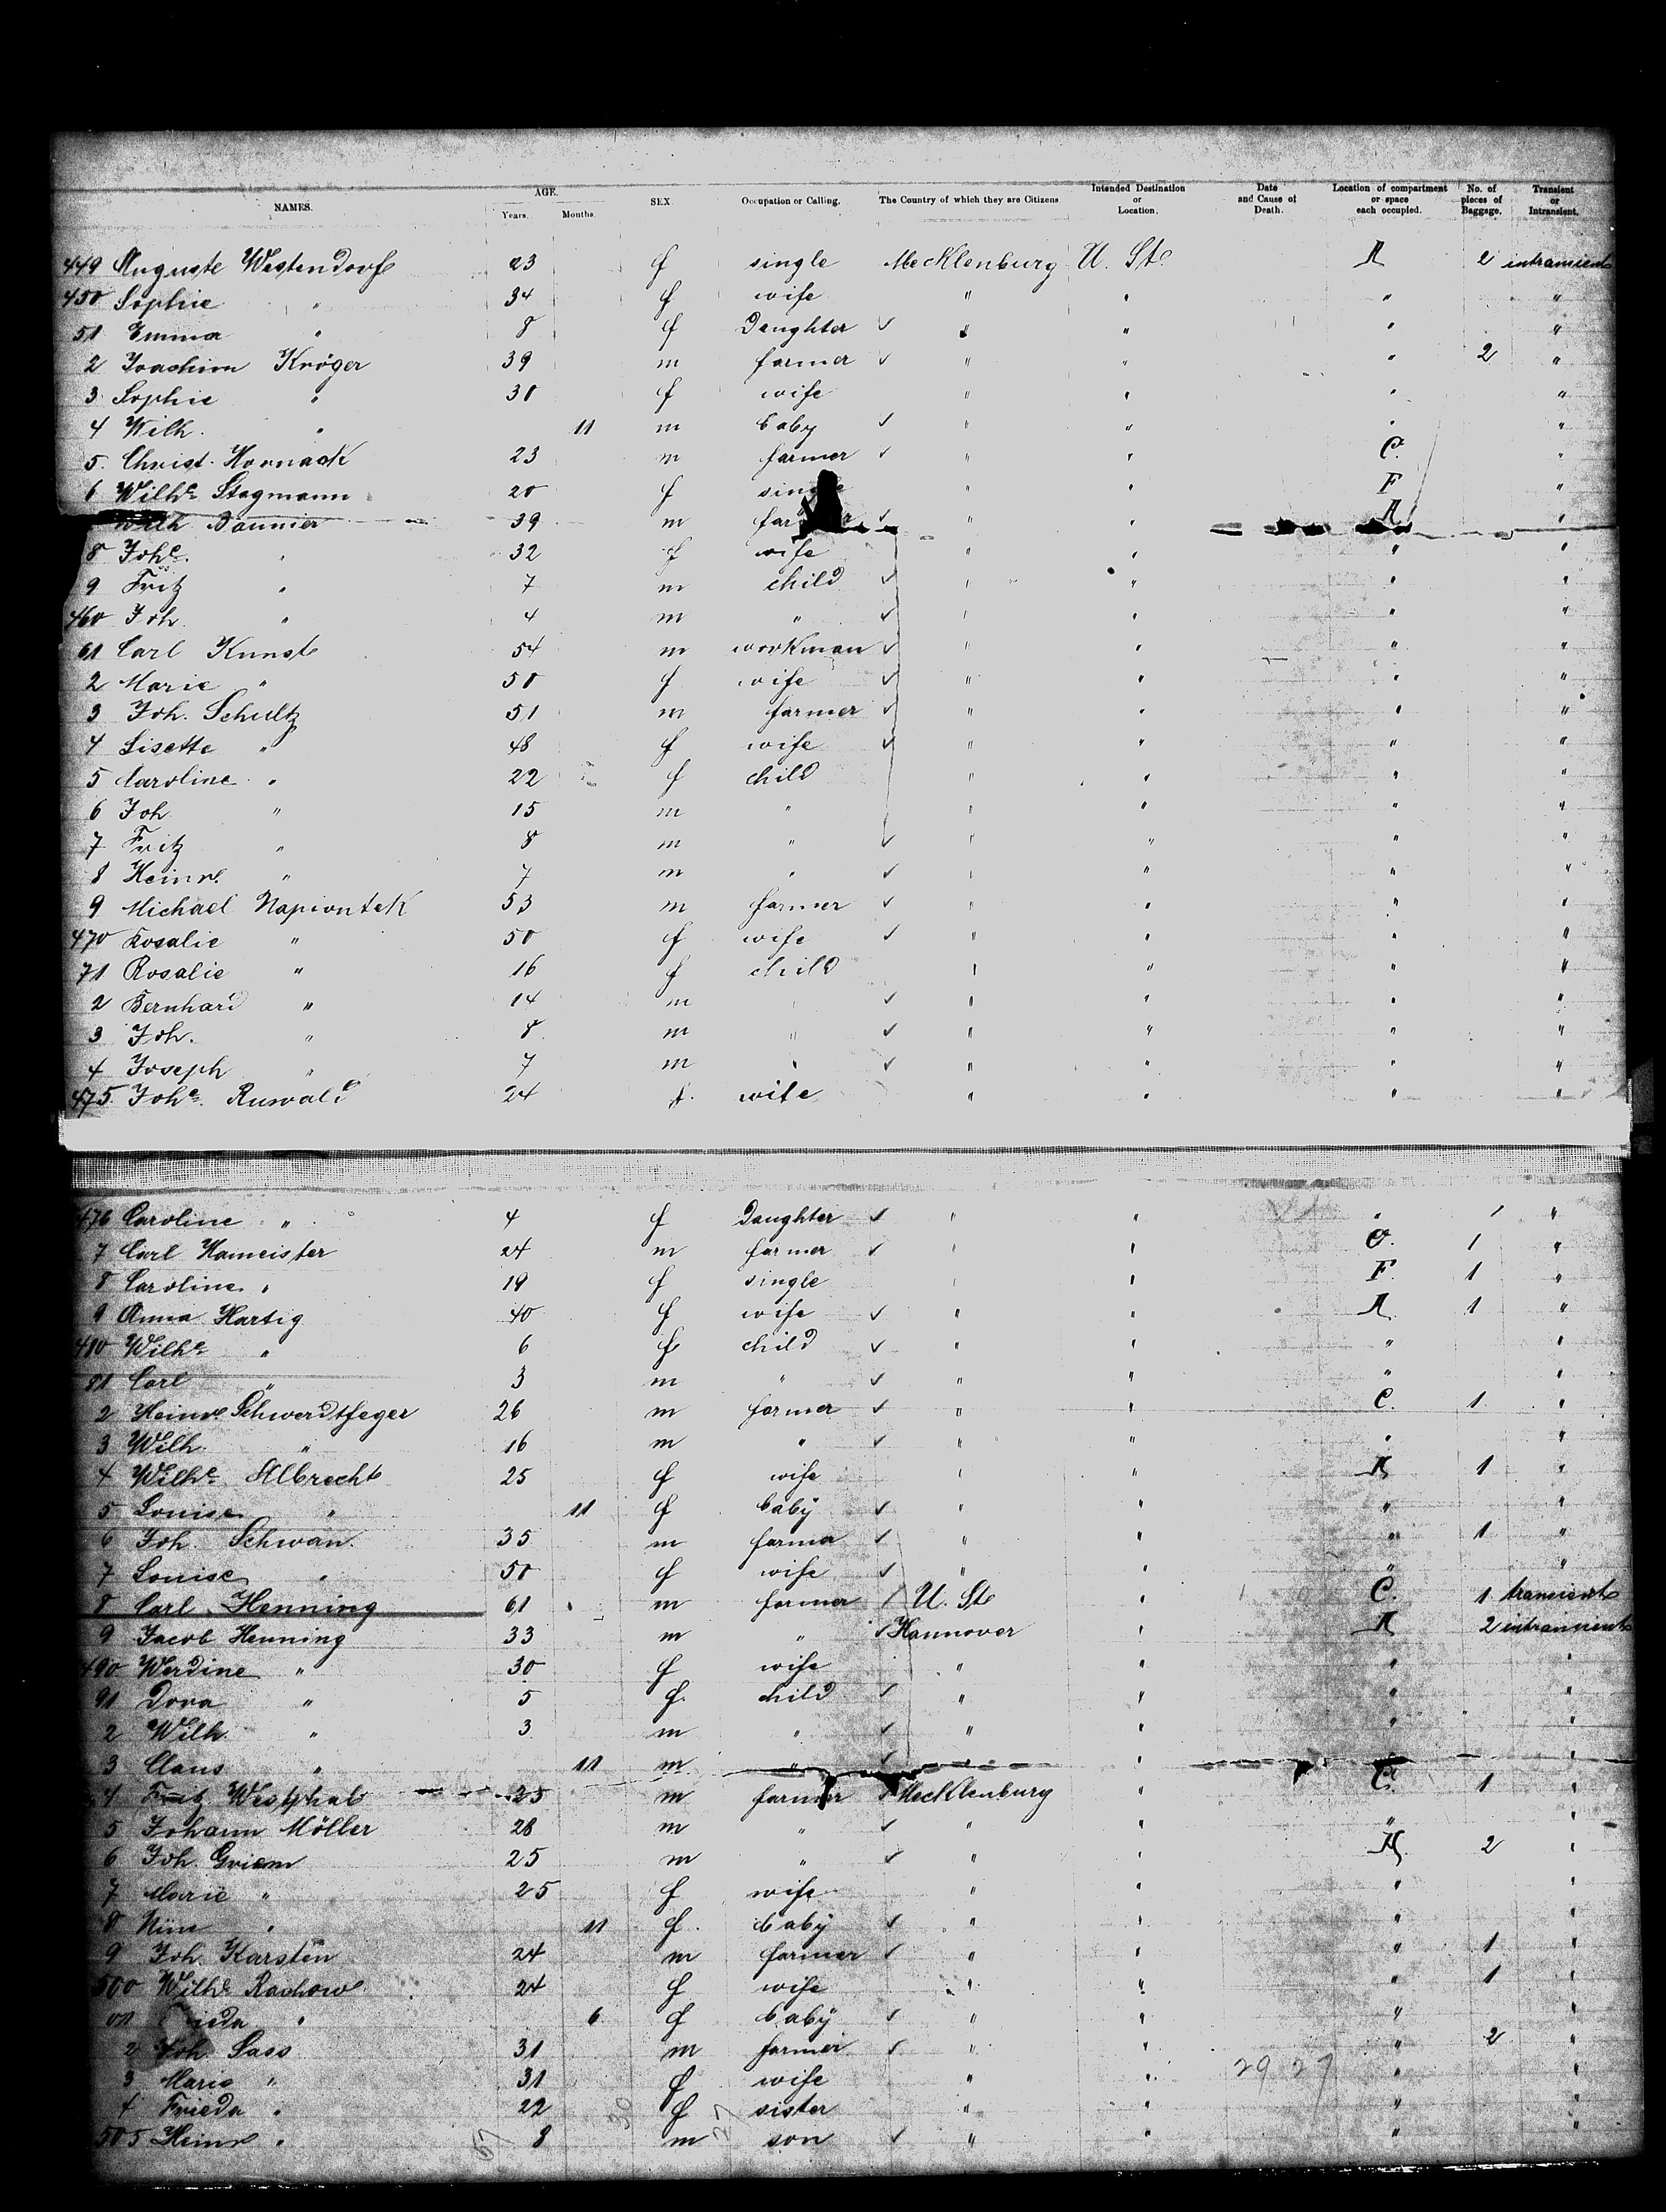 NAMES. AGE. Years. Months. SEX. Occupation or Calling. The Country of which they are Citizens. Intended Destination or Location. Date and Cause of Death. Location of compartment or space each occupied. No. of pieces of Baggage. Transient or Intransient.
449 Auguste Westendorf 23 f single Mecklenburg U. St. A 2 intransient
450 Sophie " 34 f wife " " " "
51 Emma " 8 f Daughter " " " "
2 Joachim Kröger 39 m farmer " " " 2 "
3 Sophie " 30 f wife " " " "
4 Wilh. " 11 m baby " " " "
5. Christ. Hornack 23 m farmer " " C. "
6 Wilhe Stegmann 20 f single " " F "
Wilh 39 m farmer " " A "
8 Johe. " 32 f wife " " " "
9 Fritz " 7 m child " " " "
460 Joh. " 4 m " " " " "
61 Carl Kunst 54 m workman " " " "
2 Marie " 50 f wife " " " "
3 Joh. Schultz 51 m farmer " " " "
4 Lisette " 48 f wife " " " "
5 Caroline " 22 f child " " " "
6 Joh " 15 m " " " " "
7 Fritz " 8 m " " " " "
8 Heinr. " 7 m " " " " "
9 Michael Napiontek 53 m farmer " " " "
470 Rosalie " 50 f wife " " " "
71 Rosalie " 16 f child " " " "
2 Bernhard " 14 m " " " " "
3 Joh. " 8 m " " " " "
4 Joseph " 7 m " " " " "
475. Johe. Ruwald 24 f. wife " " " "
476 Caroline " 4 f Daughter " " " "
7 Carl Hameister 24 m farmer " " C. 1 "
8 Caroline " 19 f single " " F. 1 "
9 Anna Hartig 40 f wife " " A 1 "
480 Wilhe " 6 f child " " " "
81 Carl " 3 m " " " " "
2 Heinr. Schwerdtfeger 26 m farmer " " C. 1 "
3 Wilh. " 16 m " " " " "
4 Wilhe Albrecht 25 f wife " " A 1 "
5 Louise " 11 f baby " " " "
6 Joh. Schwan. 35 m farmer " " " 1 "
7 Louise " 50 f wife " " " "
8 Carl Henning 61 m farmer U. St. " C. 1 transient
9 Jacob Henning 33 m " Hannover " A 2 intransient
490 Werdine " 30 f wife " " " "
91 Dora " 5 f. child " " " "
2 Wilh. " 3 m " " " " "
3 Claus " 11 m " " " " "
4 Fritz Westphal 25 m farmer Mecklenburg " C. 1 "
5 Johann Möller 28 m " " " " "
6 Joh. Griem 25 m " " " A 2 "
7 Marie " 25 f wife " " " "
8 Nine " 11 f. baby " " " "
9 Joh. Karsten 24 m farmer " " " 1 "
500 Wilhe Rachow 24 f wife " " " 1 "
01 Frieda " 6 f baby " " " "
2 Joh. Sass 31 m farmer " " " 2 "
3 Marie " 31 f wife " " " "
4 Frieda " 22 f sister " " " "
505 Heinr " 8 m son " " " "
29 27